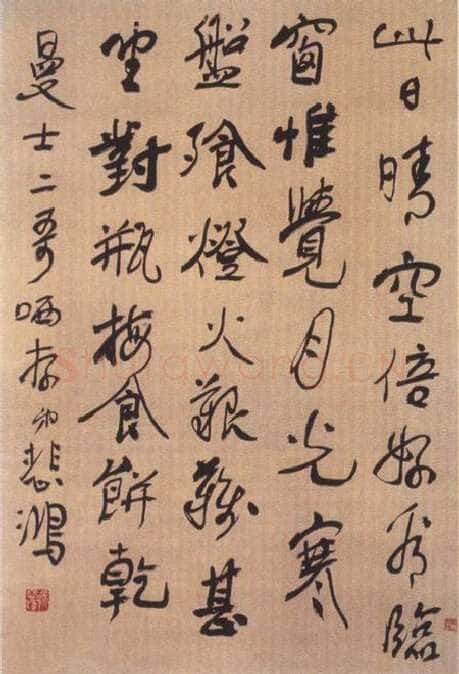 此日晴空倍好看臨
窗惟覺月光寒
盤飧燈火艱難甚
坐對瓶梅食餅乾
曼士二哥哂存弟悲鴻